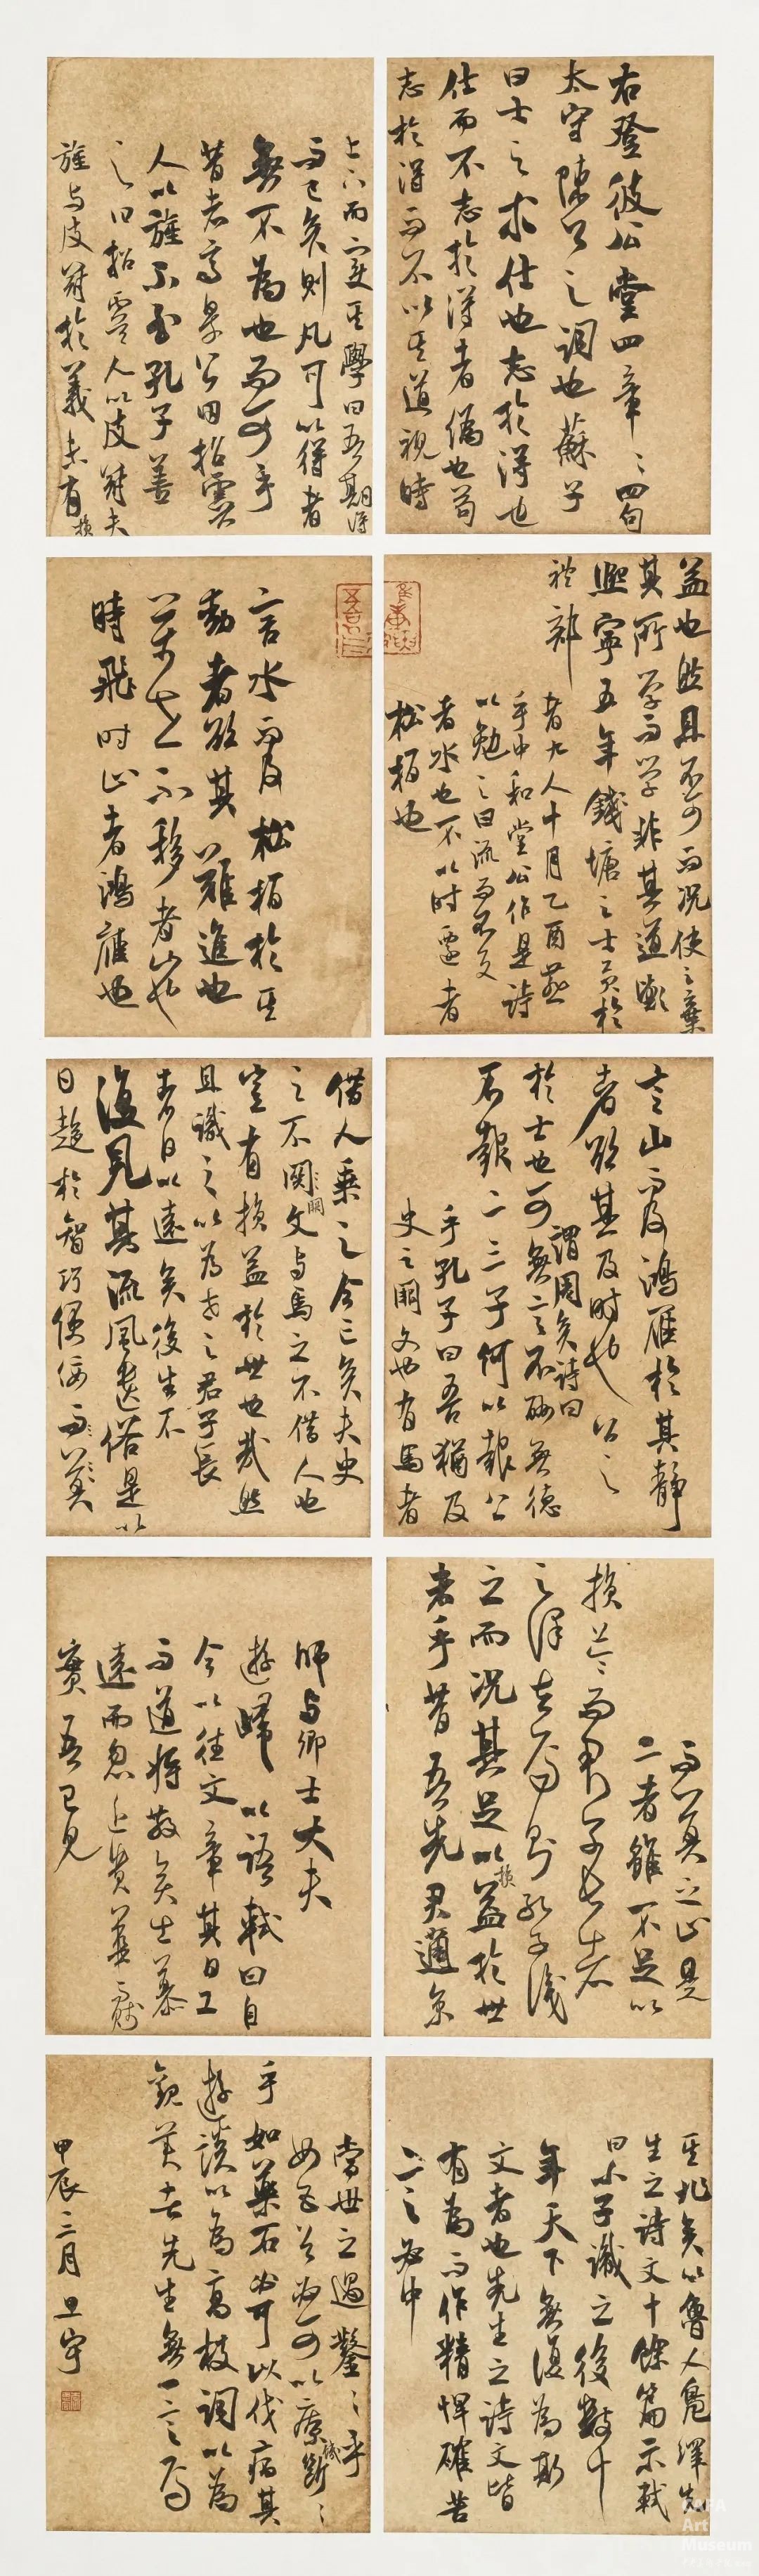 右登彼公堂四章〻四句
太守陳公之詞也蘇子
曰士之求仕也志於得也
仕而不志於得者偽也苟
志於得而不以其道視時
上下而變其學曰吾期得
而已矣則凡可以得者
無不為也而可乎
昔者齊景公田招虞
人以旌不至孔子善
之曰招虞人以皮冠夫
旌与皮冠於義未有損
益也然且不可而況使之棄
其所学而学非其道歟
熙寧五年錢塘之士貢於
禮部
者九人十月乙酉燕
於中和堂公作是詩
以勉之曰流而不反
者水也不以时遷者
松柏也
言水而及松柏於其
動者欲其難進也
萬世不移者山也
時飛时止者鴻雁也
言山而及鴻雁於其靜
者欲其及时也公之
於士也可謂周矣詩曰無言不酬無德
不報二三子何以報公
乎孔子曰吾猶及
史之闕文也有馬者
借人乘之今亡矣夫史
之不闕文与馬之不借人也
豈有損益於世也哉然
且識之以為世之君子長
者日以遠矣後生不
復見其流風遺俗是以
日趨於智巧便佞而莫
而莫之止是
二者雖不足以
損益而君子長者
之澤在焉則孔子識
之而況其足以損益於世
者乎昔吾先君適京
師与卿士大夫
遊歸以語軾曰自
今以往文章其日工
而道將散矣士慕
遠而忽近貴華而賤
實吾已見
其兆矣以魯人鳧繹先
生之詩文十餘篇示軾
曰小子識之後數十
年天下無復為斯
文者也先生之詩文皆
有為而作精悍確苦
言必中
當世之過鑿〻乎
如五谷必可以療飢斷〻
乎如藥石必可以伐病其
遊談以為高枝詞以為
觀美者先生無一言焉
甲辰二月
Art
Museum